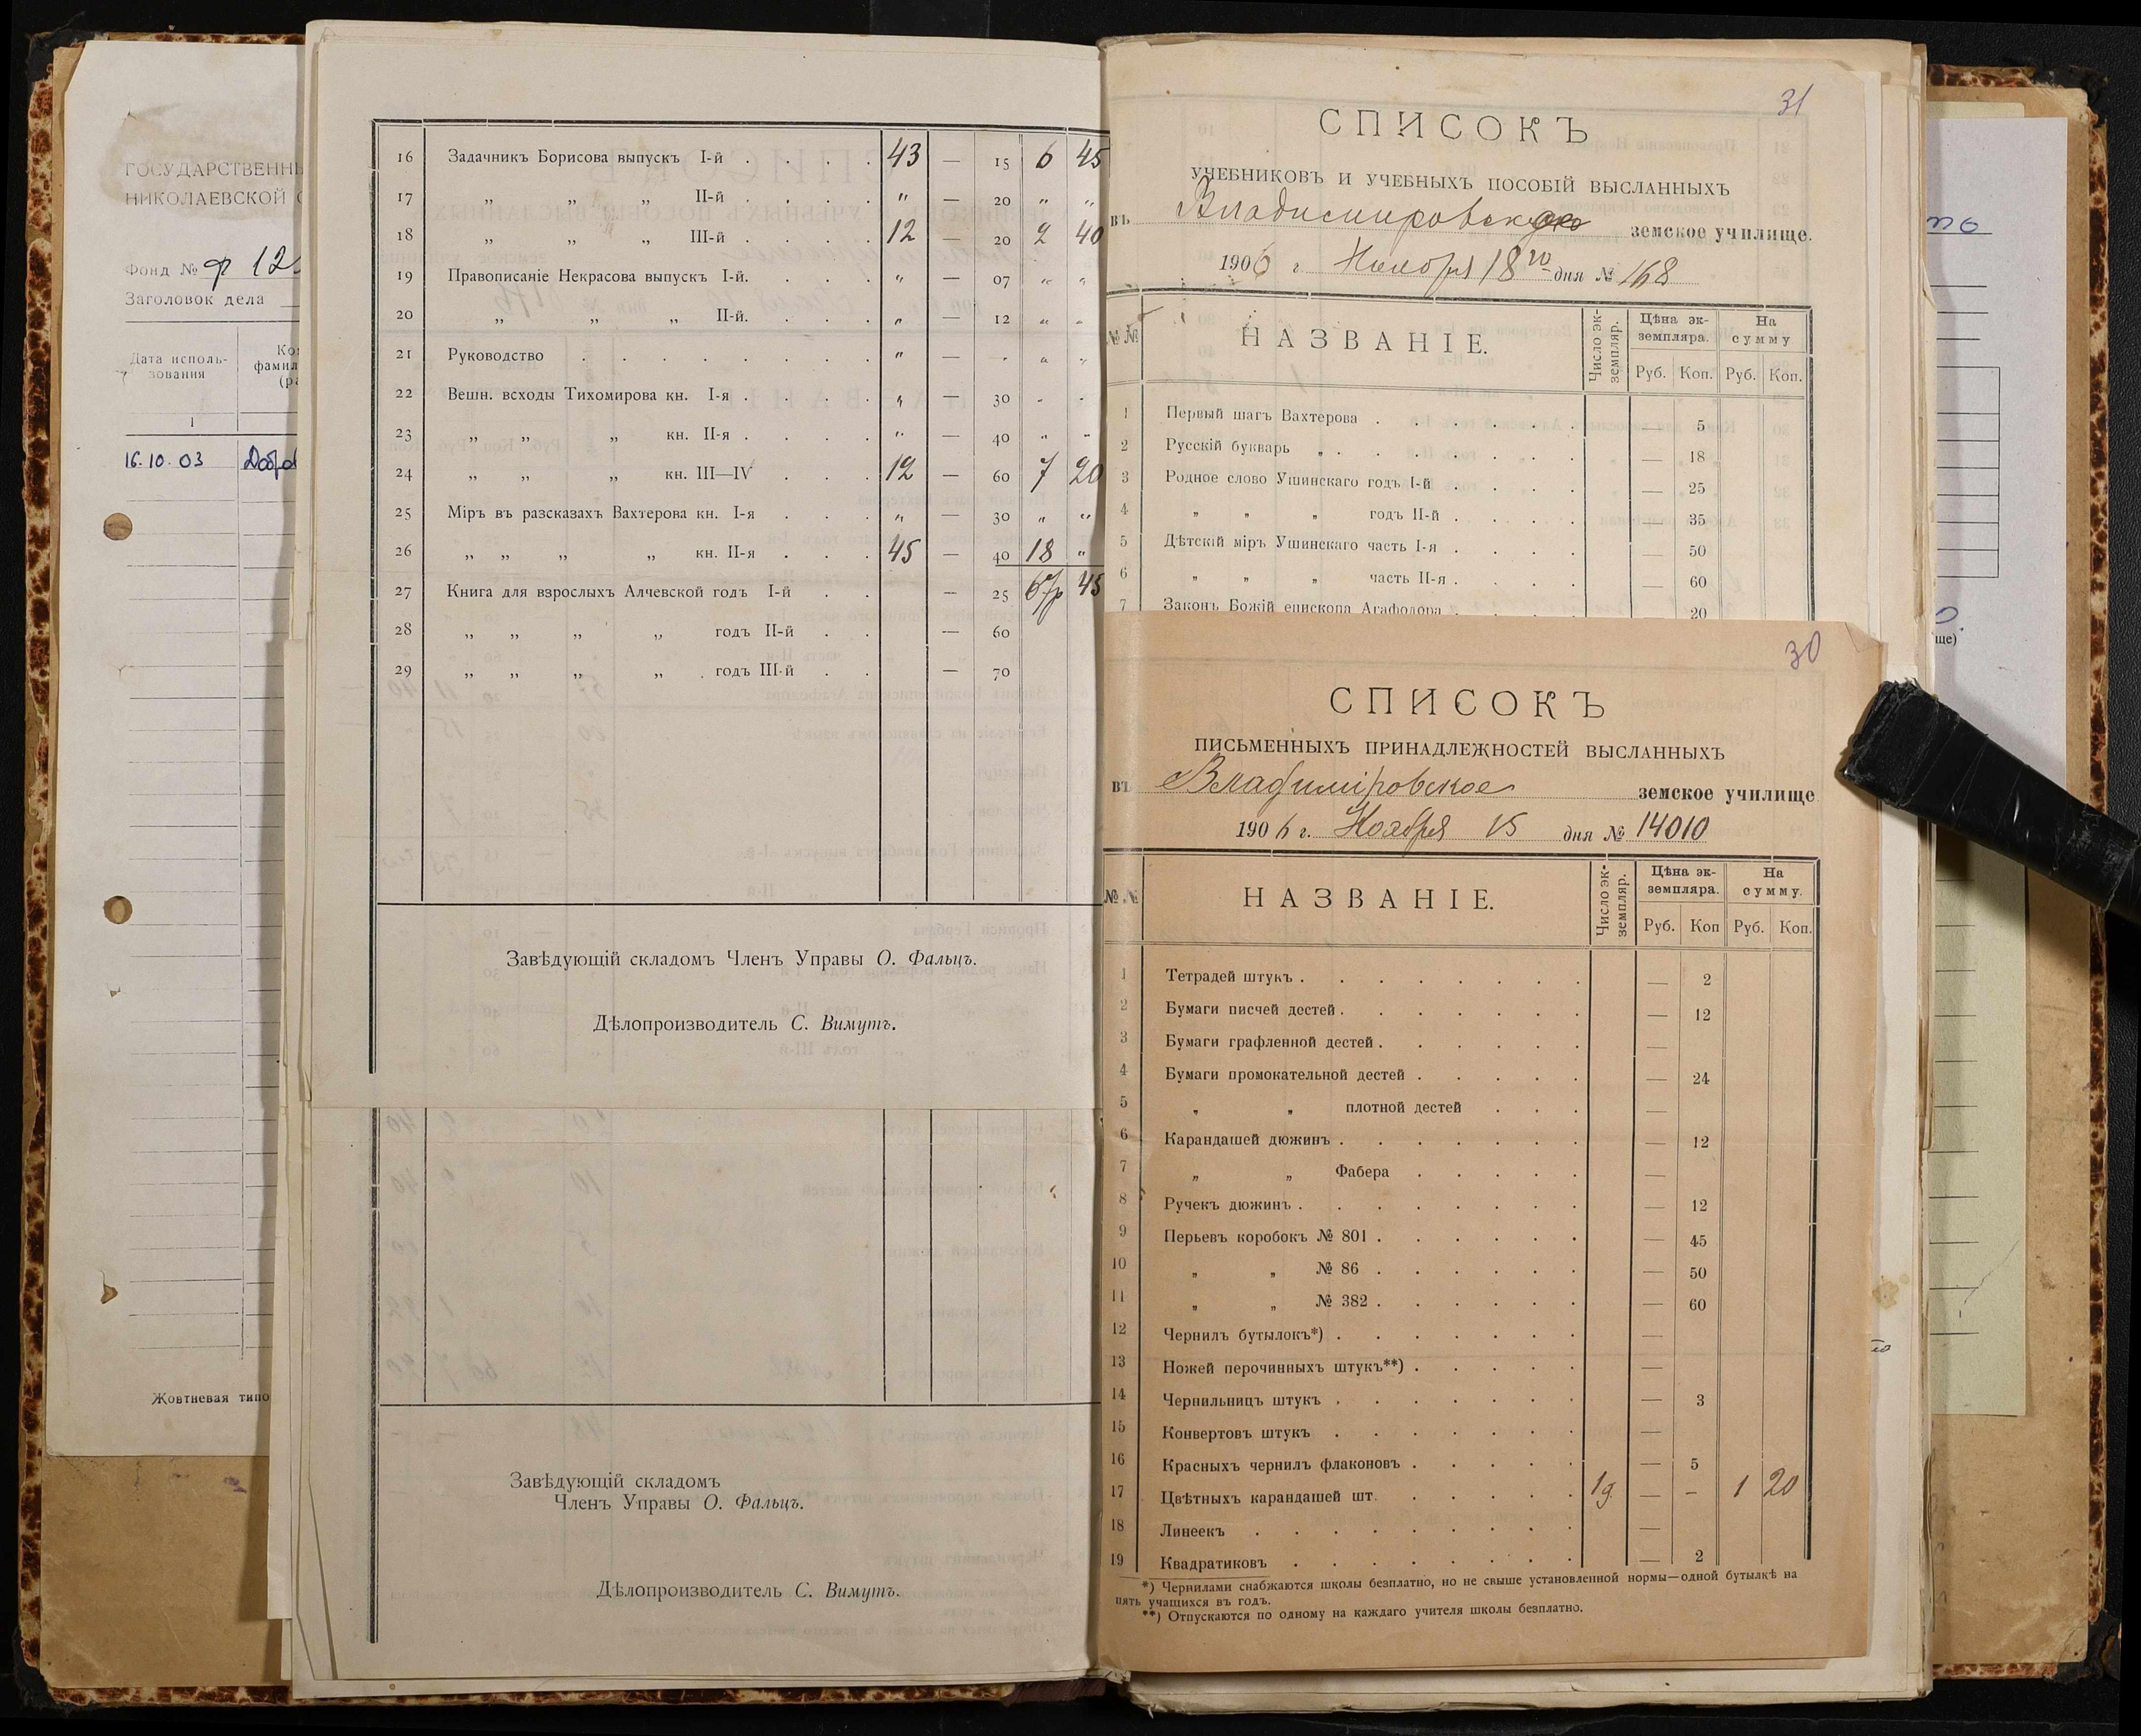 ГОСУДАРСТВЕННЫ
НИКОЛАЕВСКОЙ
Фонд № ф 12
Заголовок дела
Дата исполь-
зования
фамил
1
16.10.03
Жовтневая типо
16 Задачникъ Борисова выпускъ I-й 43 — 15 6 45
17 „ „ „ II-й „ — 20 „ „
18 „ „ „ III-й 12 — 20 2 40
19 Правописаніе Некрасова выпускъ I-й. „ — 07 „ „
20 „ „ „ II-й. „ — 12 „ „
21 Руководство „ — „ „
22 Вешн. всходы Тихомирова кн. I-я „ — 30 „ „
23 „ „ „ кн. II-я „ — 40 „ „
24 „ „ „ кн. III—IV 12 — 60 7 20
25 Міръ въ разсказахъ Вахтерова кн. I-я „ — 30 „ „
26 „ „ „ „ кн. II-я 45 — 40 18 „
27 Книга для взрослыхъ Алчевской годъ I-й — 25 67р 45
28 „ „ „ „ годъ II-й — 60
29 „ „ „ „ годъ III-й — 70
Завѣдующій складомъ Членъ Управы О. Фальцъ.
Дѣлопроизводитель С. Вимутъ.
Завѣдующій складомъ
Членъ Управы О. Фальцъ.
Дѣлопроизводитель С. Вимутъ.
31
СПИСОКЪ
УЧЕБНИКОВЪ И УЧЕБНЫХЪ ПОСОБІЙ ВЫСЛАННЫХЪ
въ земское училище.
1906 г. Ноября 18го дня № 168
№№ НАЗВАНІЕ. Число эк-земпляр. Цѣна эк-земпляра. На сумму
Руб. Коп. Руб. Коп.
1 Первый шагъ Вахтерова — 5
2 Русскій букварь „ — 18
3 Родное слово Ушинскаго годъ I-й — 25
4 „ „ „ годъ II-й — 35
5 Дѣтскій міръ Ушинскаго часть I-я — 50
6 „ „ „ часть II-я — 60
7 Законъ Божій епископа Агафодора 20
30
СПИСОКЪ
ПИСЬМЕННЫХЪ ПРИНАДЛЕЖНОСТЕЙ ВЫСЛАННЫХЪ
въ Владиміровское земское училище
1906 г. Ноября 15 дня № 14010
№№ НАЗВАНІЕ. Число эк-земпляр. Цѣна эк-земпляра. На сумму.
Руб. Коп Руб. Коп.
1 Тетрадей штукъ — 2
2 Бумаги писчей дестей — 12
3 Бумаги графленной дестей —
4 Бумаги промокательной дестей — 24
5 „ „ плотной дестей —
6 Карандашей дюжинъ — 12
7 „ „ Фабера —
8 Ручекъ дюжинъ — 12
9 Перьевъ коробокъ № 801 — 45
10 „ „ № 86 — 50
11 „ „ № 382 — 60
12 Чернилъ бутылокъ*) —
13 Ножей перочинныхъ штукъ**) —
14 Чернильницъ штукъ — 3
15 Конвертовъ штукъ —
16 Красныхъ чернилъ флаконовъ — 5
17 Цвѣтныхъ карандашей шт. 1д. — – 1 20
18 Линеекъ —
19 Квадратиковъ — 2
*) Чернилами снабжаются школы безплатно, но не свыше установленной нормы—одной бутылкѣ на
пять учащихся въ годъ.
**) Отпускаются по одному на каждаго учителя школы безплатно.